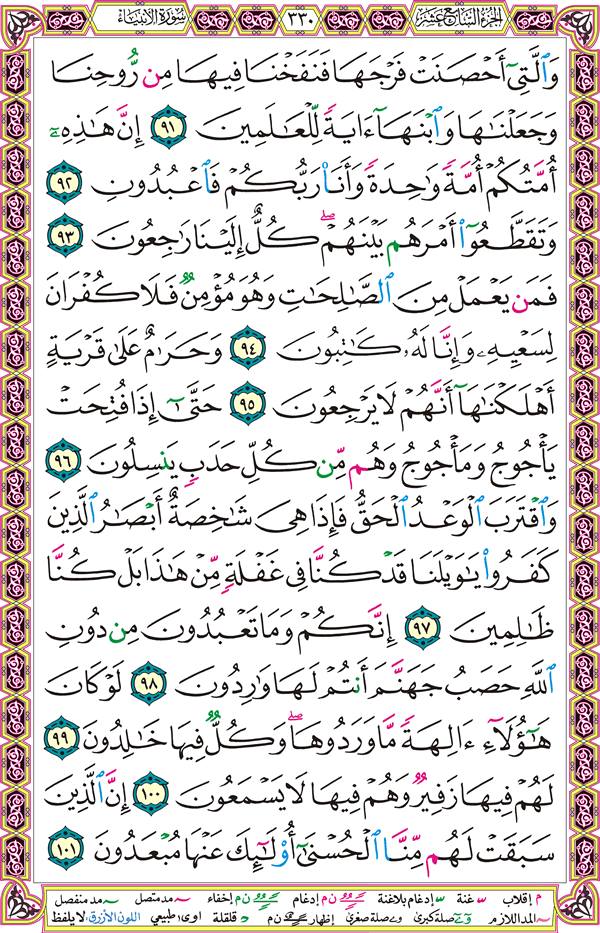 الجزء السابع عشر
٣٣٠
سورة الأنبياء
وَٱلَّتِىٓ أَحْصَنَتْ فَرْجَهَا فَنَفَخْنَا فِيهَا مِن رُّوحِنَا
وَجَعَلْنَٰهَا وَٱبْنَهَآ ءَايَةً لِّلْعَٰلَمِينَ ٩١ إِنَّ هَٰذِهِۦٓ
أُمَّتُكُمْ أُمَّةً وَٰحِدَةً وَأَنَا۠ رَبُّكُمْ فَٱعْبُدُونِ ٩٢
وَتَقَطَّعُوٓا۟ أَمْرَهُم بَيْنَهُمْ ۖ كُلٌّ إِلَيْنَا رَٰجِعُونَ ٩٣
فَمَن يَعْمَلْ مِنَ ٱلصَّٰلِحَٰتِ وَهُوَ مُؤْمِنٌ فَلَا كُفْرَانَ
لِسَعْيِهِۦ وَإِنَّا لَهُۥ كَٰتِبُونَ ٩٤ وَحَرَٰمٌ عَلَىٰ قَرْيَةٍ
أَهْلَكْنَٰهَآ أَنَّهُمْ لَا يَرْجِعُونَ ٩٥ حَتَّىٰٓ إِذَا فُتِحَتْ
يَأْجُوجُ وَمَأْجُوجُ وَهُم مِّن كُلِّ حَدَبٍ يَنسِلُونَ ٩٦
وَٱقْتَرَبَ ٱلْوَعْدُ ٱلْحَقُّ فَإِذَا هِىَ شَٰخِصَةٌ أَبْصَٰرُ ٱلَّذِينَ
كَفَرُوا۟ يَٰوَيْلَنَا قَدْ كُنَّا فِى غَفْلَةٍ مِّنْ هَٰذَا بَلْ كُنَّا
ظَٰلِمِينَ ٩٧ إِنَّكُمْ وَمَا تَعْبُدُونَ مِن دُونِ
ٱللَّهِ حَصَبُ جَهَنَّمَ أَنتُمْ لَهَا وَٰرِدُونَ ٩٨ لَوْ كَانَ
هَٰٓؤُلَآءِ ءَالِهَةً مَّا وَرَدُوهَا ۖ وَكُلٌّ فِيهَا خَٰلِدُونَ ٩٩
لَهُمْ فِيهَا زَفِيرٌ وَهُمْ فِيهَا لَا يَسْمَعُونَ ١٠٠ إِنَّ ٱلَّذِينَ
سَبَقَتْ لَهُم مِّنَّا ٱلْحُسْنَىٰٓ أُو۟لَٰٓئِكَ عَنْهَا مُبْعَدُونَ ١٠١
م إقلاب غنة إدغام بلاغنة ن م إدغام ن م إخفاء مد متصل مد منفصل
المد اللازم صلة كبرى صلة صغرى إظهار ن م قلقلة اوى طبيعي اللون الأزرق لا يلفظ